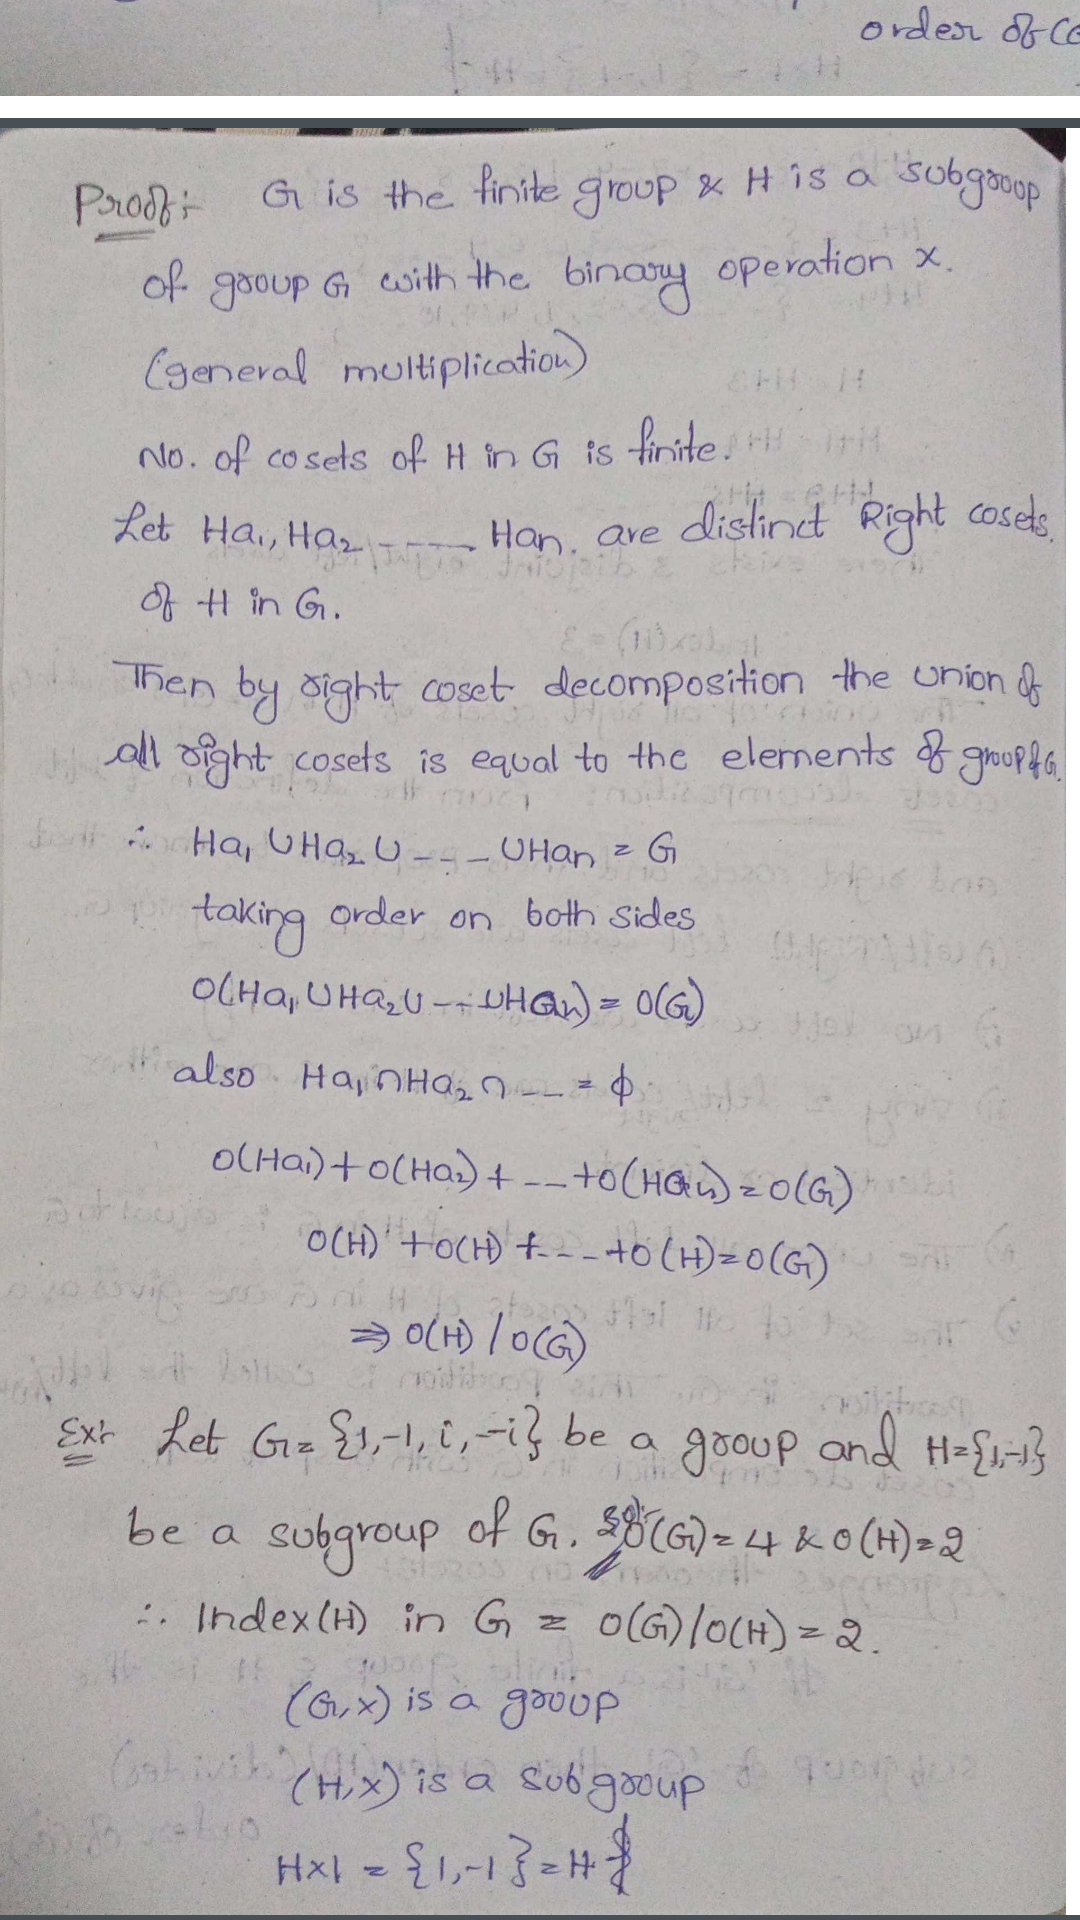 order of (G
Proof:- G is the finite group & H is a subgroup
of group G with the binary operation x.
(general multiplication)
No. of cosets of H in G is finite.
Let Ha₁, Ha₂ ----- Han. are distinct Right cosets.
of H in G.
Then by right coset decomposition the union of
all right cosets is equal to the elements of group G.
∴ Ha₁ ∪ Ha₂ ∪ --- ∪ Han = G
taking order on both sides
O(Ha₁ ∪ Ha₂ ∪ --- ∪ Han) = O(G)
also Ha₁ ∩ Ha₂ ∩ --- = ϕ
O(Ha₁) + O(Ha₂) + --- + O(Han) = O(G)
O(H) + O(H) + --- + O(H) = O(G)
⇒ O(H) / O(G)
Ex:- Let G = {1, -1, i, -i} be a group and H = {1, -1}
be a subgroup of G. O(G) = 4 & O(H) = 2
∴ Index(H) in G = O(G)/O(H) = 2.
(G, x) is a group
(H, x) is a subgroup
H×1 = {1, -1} = H